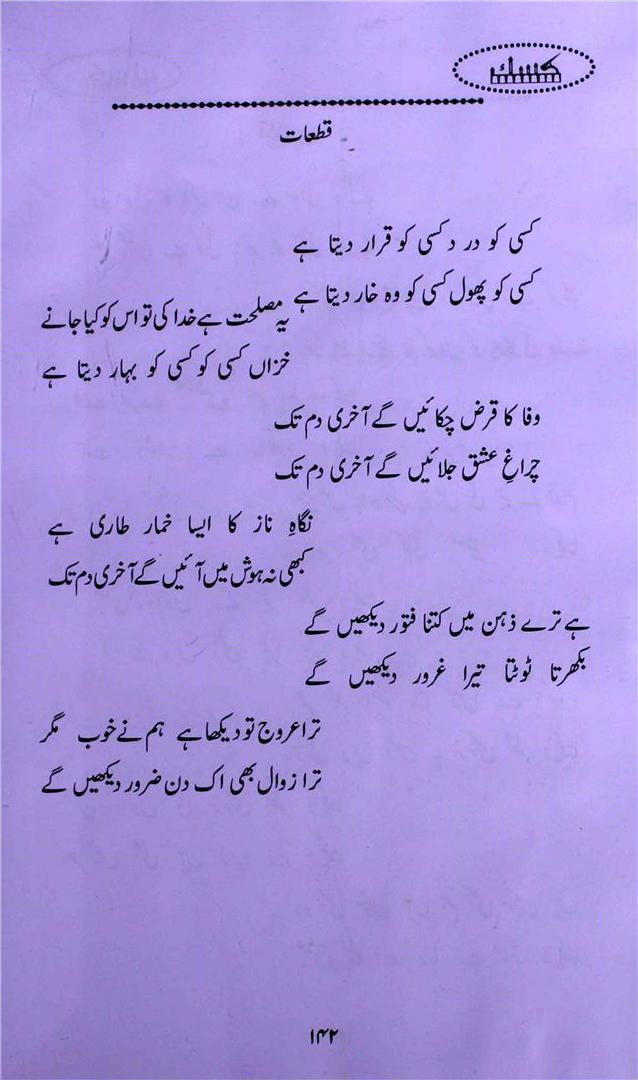 کسک
قطعات
کسی کو درد کسی کو قرار دیتا ہے
کسی کو پھول کسی کو وہ خار دیتا ہے
یہ مصلحت ہے خدا کی تو اس کو کیا جانے
خزاں کسی کو کسی کو بہار دیتا ہے
وفا کا قرض چکائیں گے آخری دم تک
چراغِ عشق جلائیں گے آخری دم تک
نگاہِ ناز کا ایسا خمار طاری ہے
کبھی نہ ہوش میں آئیں گے آخری دم تک
ہے ترے ذہن میں کتنا فتور دیکھیں گے
بکھرتا ٹوٹتا تیرا غرور دیکھیں گے
ترا عروج تو دیکھا ہے ہم نے خوب مگر
ترا زوال بھی اک دن ضرور دیکھیں گے
۱۴۲